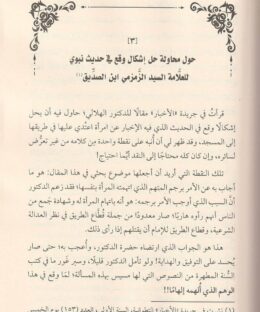 [٣]
حول محاولة حل إشكال وقع في حديث نبوي
للعلَّامة السيد الزمزمي ابن الصدِّيق(١)
قرأتُ في جريدة «الأخبار» مقالًا للدكتور الهلالي؛ حاول فيه أن يحل
إشكالًا وقع في الحديث الذي فيه الإخبار عن امرأة اعتُدي عليها في طريقها
إلى المسجد، وقد ظهر لي أن أُنبه على نقطة واحدة مِن كلامه مِن غير تعرُّض
لسائره، وإن كان كله محتاجًا إلى النقد أيَّما احتياج!
تلك النقطة التي أريد أن أجعلها موضوع بحثي في هذا المقال: هو ما
أجاب به عن الأمر برجم المتهم الذي اتهمته المرأة بنفسها؛ فقد زعم الدكتور
أنَّ السبب الذي أوجب الأمر برجمه: أنه باتهام المرأة له وشهادة جُمع من
الناس أنهم رأوه هاربًا؛ صار معدودًا من جملة قُطَّاع الطريق في نظر العدالة
الشرعية، وقطاع الطريق للإمام أن يقتلهم إذا رأى ذلك.
هذا هو الجواب الذي ارتضاه حضرة الدكتور، وأُعجب به؛ حتى صار
يُحمد على التوفيق والهداية! ولو تأمل الدكتور قليلًا، وسبر غَور ما في كتب
السنُّة المطهرة من النصوص التي لها مسيس بهذه المسألة؛ لما وقع في هذا
الوهم الذي أُلهمه إلهامًا!!
(١) نشر في جريدة «الأخبار» التطوانية، السنة الأولى، العدد (١٥٣) يوم الخميس